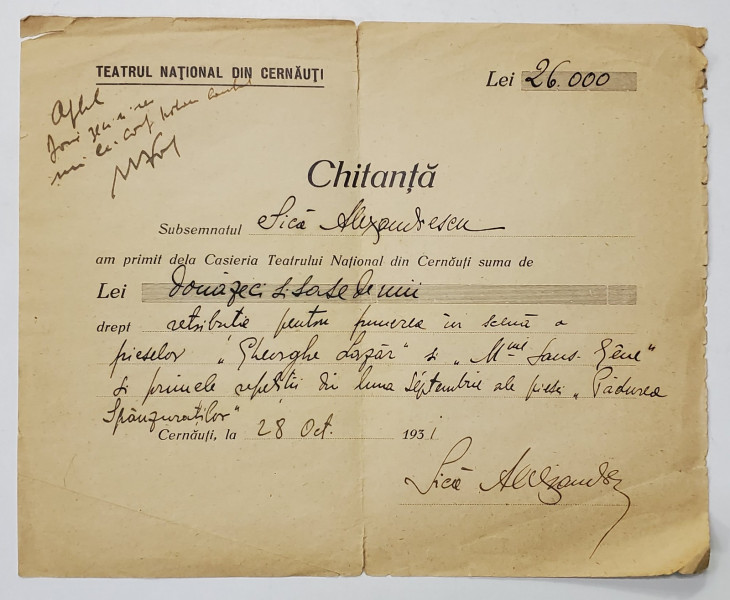 TEATRUL NAŢIONAL DIN CERNĂUŢI
Lei 26.000
Chitanţă
Subsemnatul Sică Alexandrescu
am primit dela Casieria Teatrului Naţional din Cernăuţi suma de
Lei Douăzeci și șase de mii
drept retribuție pentru punerea în scenă a
pieselor „Gheorghe Lazăr" și „Mme Sans-Gêne"
și primele repetiții din luna Septembrie ale piesei „Pădurea
Spânzuraților"
Cernăuţi, la 28 Oct. 1931
Sică Alexandrescu